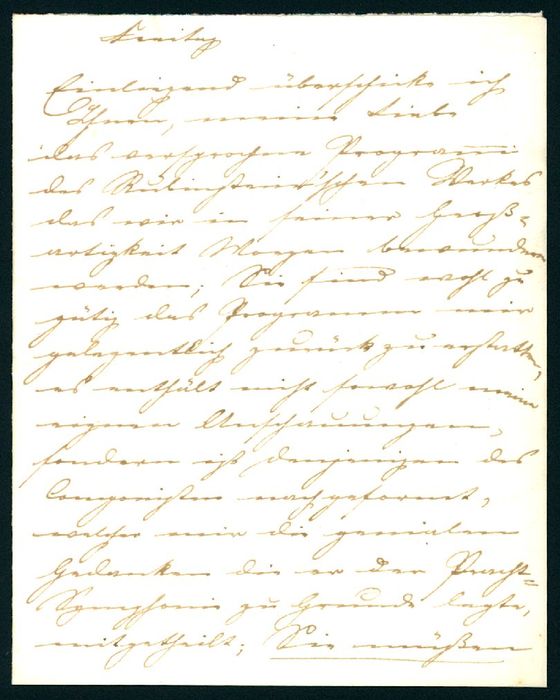 Freitag
Einliegend überschicke ich
Ihnen, meine Liebe
das versprochene Programm
des Rubinstein'schen Werkes
das wir in seiner Groß-
artigkeit Morgen bewundern
werden; Sie sind wohl so
gütig das Programm mir
gelegentlich zurück zu erstatten,
es enthält nicht sowohl meine
eigenen Anschauungen,
sondern ist denjenigen des
Componisten nachgeformt,
welcher mir die genialen
Gedanken die er der Pracht-
Symphonie zu Grunde legte,
mitgetheilt; Sie müßen